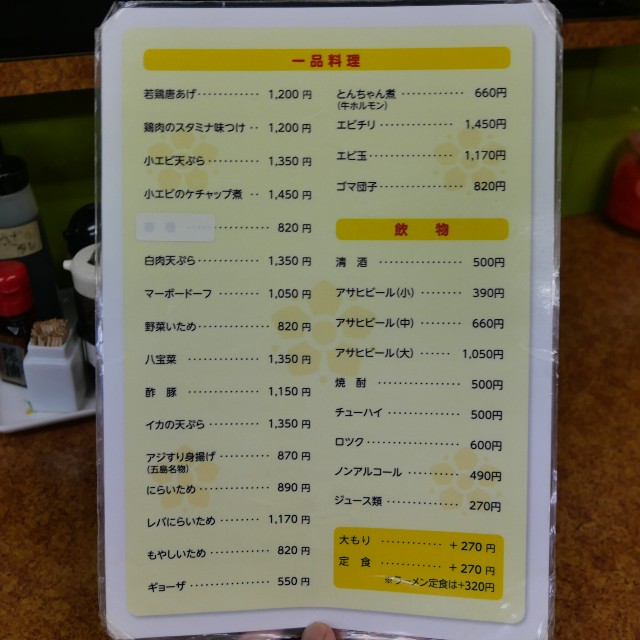 一品料理
若鶏唐あげ………… 1,200 円
鶏肉のスタミナ味つけ ‥ 1,200 円
小エビ天ぷら………… 1,350 円
小エビのケチャップ煮 ‥ 1,450 円
………… 820 円
白肉天ぷら………… 1,350 円
マーボードーフ ……… 1,050 円
野菜いため………… 820 円
八宝菜 ………… 1,350 円
酢 豚 ………… 1,150 円
イカの天ぷら……… 1,350 円
アジすり身揚げ ……… 870 円
(五島名物)
にらいため………… 890 円
レバにらいため ……… 1,170 円
もやしいため………… 820 円
ギョーザ ………… 550 円
とんちゃん煮 ………… 660円
(牛ホルモン)
エビチリ ………… 1,450円
エビ玉 ………… 1,170円
ゴマ団子 ………… 820円
飲 物
清 酒 ………… 500円
アサヒビール(小) ……… 390円
アサヒビール(中) ……… 660円
アサヒビール(大) …… 1,050円
焼 酎 ………… 500円
チューハイ ………… 500円
ロツク ………… 600円
ノンアルコール ……… 490円
ジュース類 ………… 270円
大もり ………… + 270 円
定 食 ………… + 270 円
※ラーメン定食は+320円